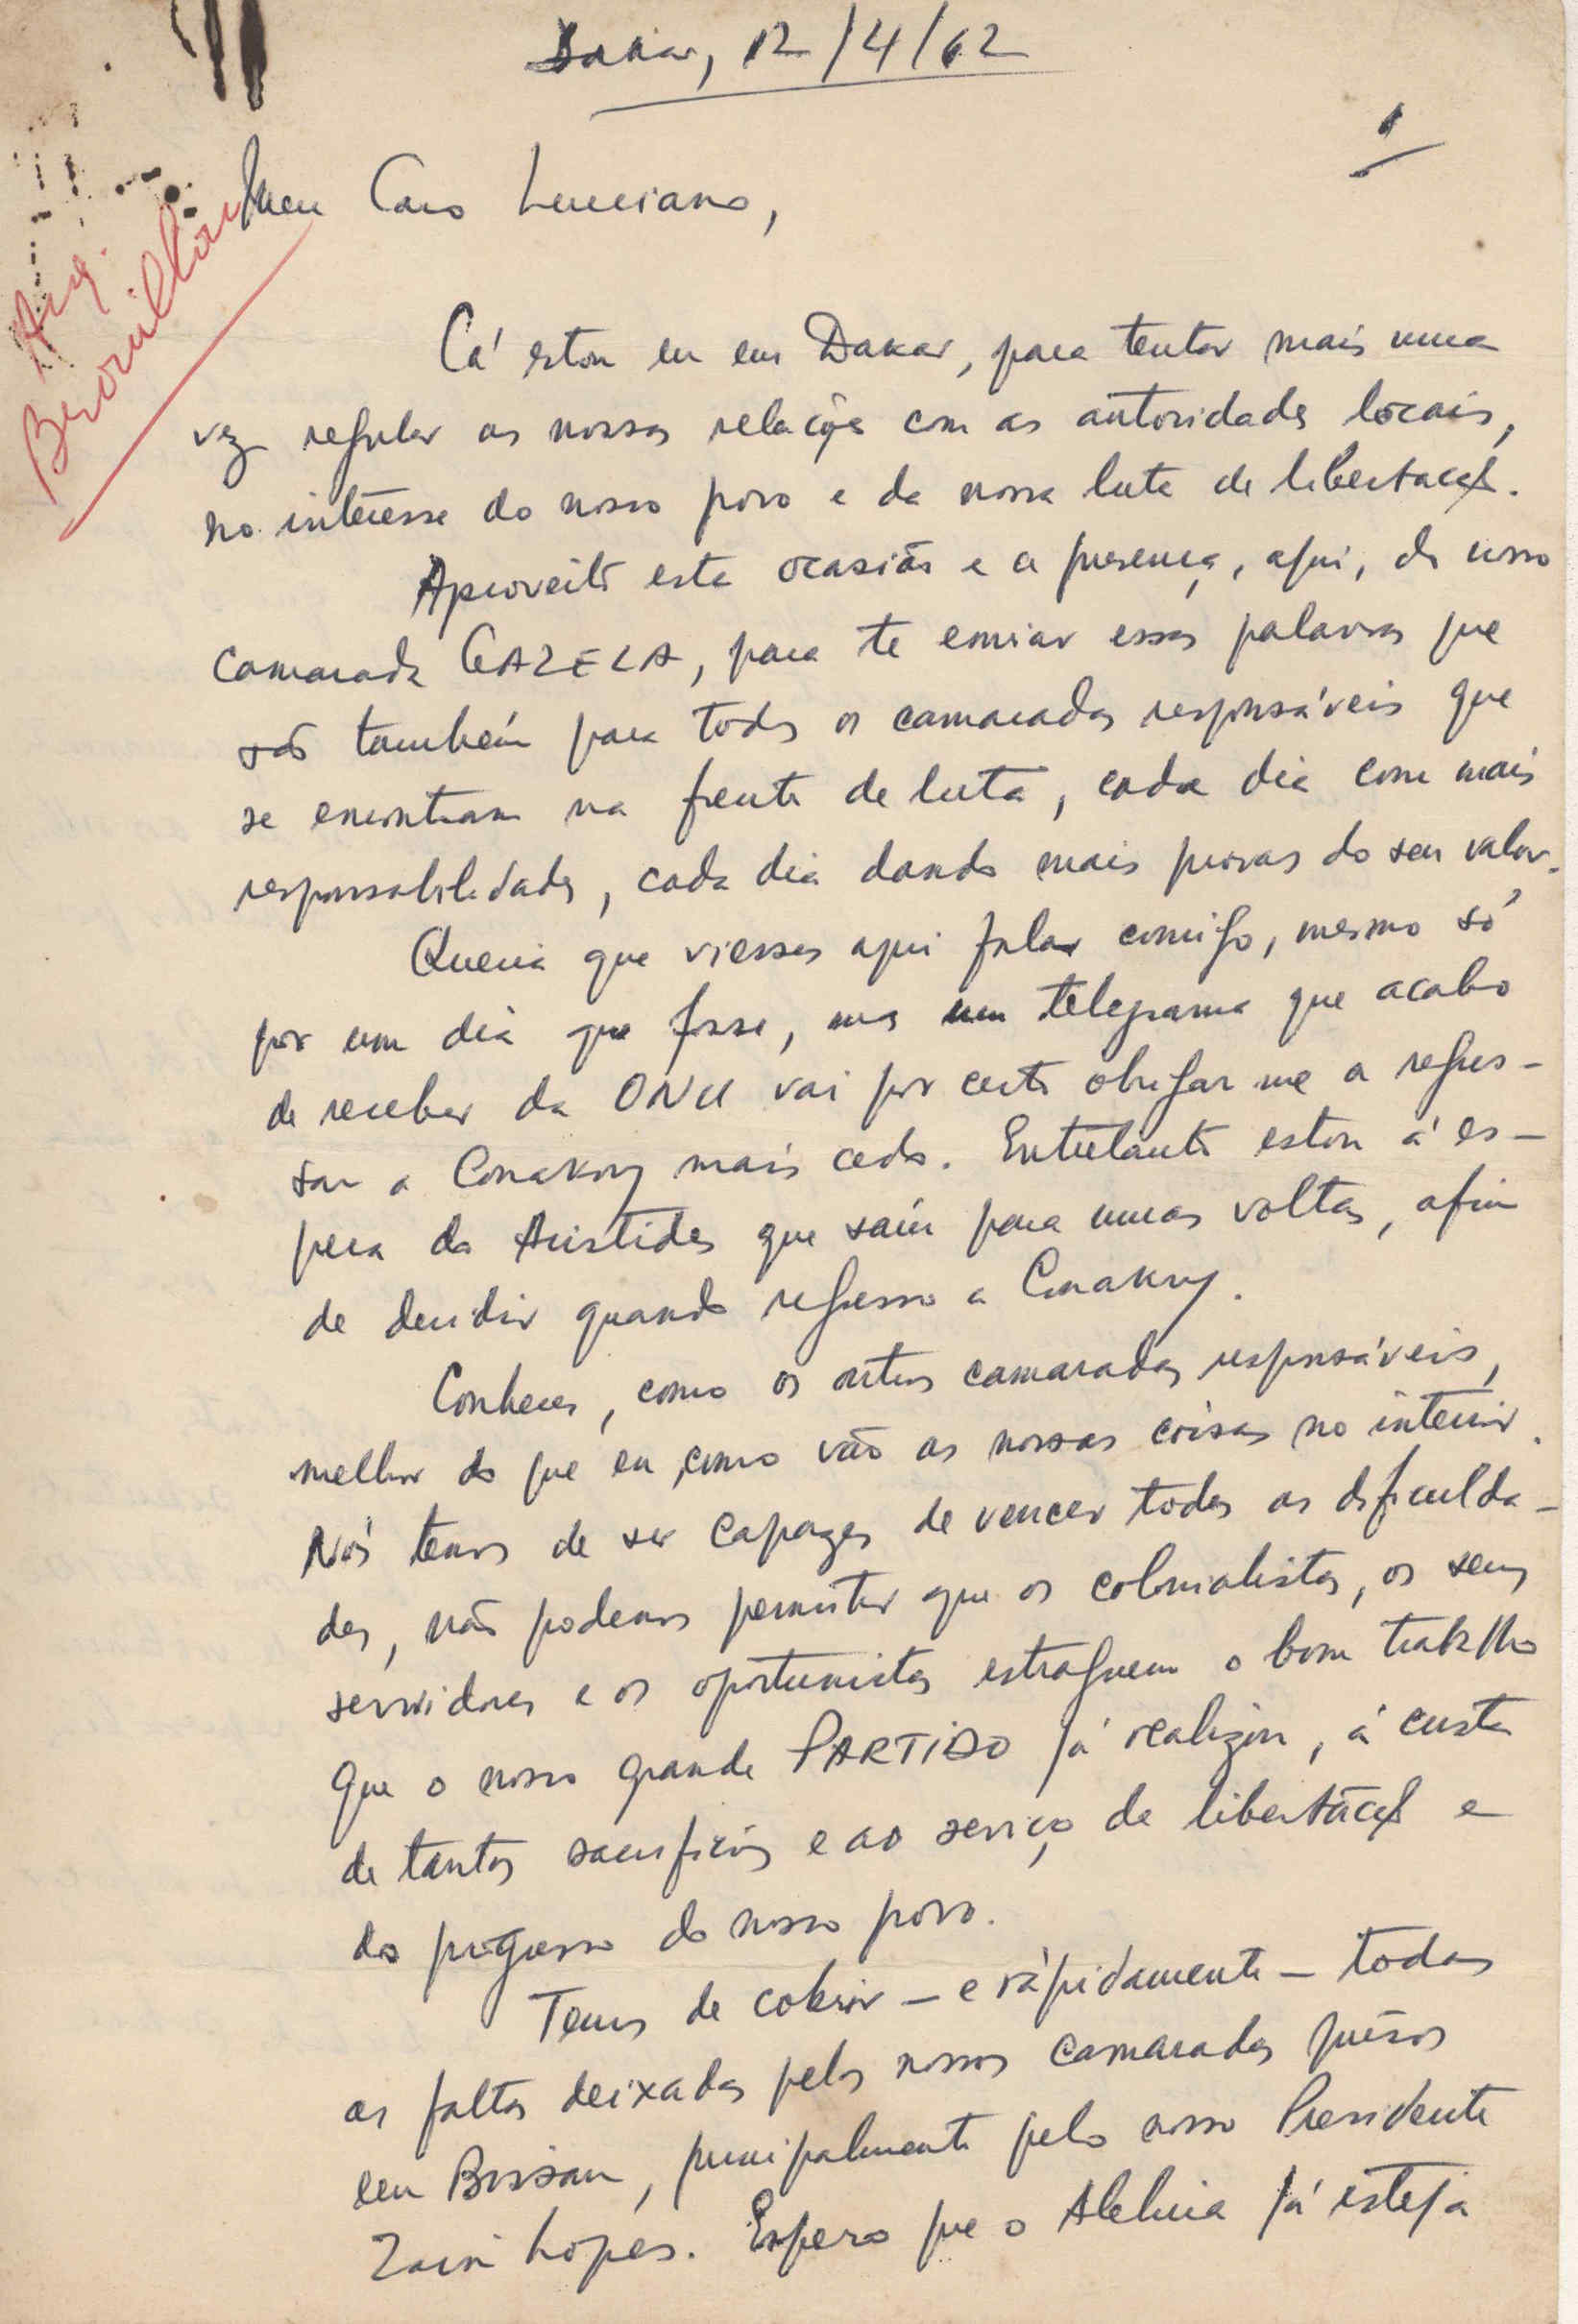 Dakar, 12/4/62
1
Meu Caro Luciano,
Arq.
Cá estou eu em Dakar, para tentar mais uma
vez regular as nossas relações com as autoridades locais,
no interêsse do nosso povo e da nossa luta de libertação.
Aproveito esta ocasião e a presença, aqui, do nosso
camarada GAZELA, para te enviar essas palavras que
são também para todos os camaradas responsáveis que
se encontram na frente de luta, cada dia com mais
responsabilidades, cada dia dando mais provas do seu valor.
Queria que viesses aqui falar comigo, mesmo só
por um dia que fosse, mas um telegrama que acabo
de receber da ONU vai por certo obrigar me a regres-
sar a Conakry mais cedo. Entretanto estou á es-
pera do Aristides que saíu para umas voltas, afim
de decidir quando regresso a Conakry.
Conheces, como os outros camaradas responsáveis,
melhor do que eu, como vão as nossas coisas no interior.
Nós temos de ser capazes de vencer todas as dificulda-
des, não podemos permitir que os colonialistas, os seus
servidores e os oportunistas estraguem o bom trabalho
que o nosso grande PARTIDO já realizou, á custa
de tantos sacrifícios e ao serviço de libertação e
do progresso do nosso povo.
Temos de cobrir – e rápidamente – todas
as faltas deixadas pelos nossos camaradas prêsos
em Bissau, principalmente pelo nosso Presidente
Zain Lopes. Espero que o Aleluia já esteja